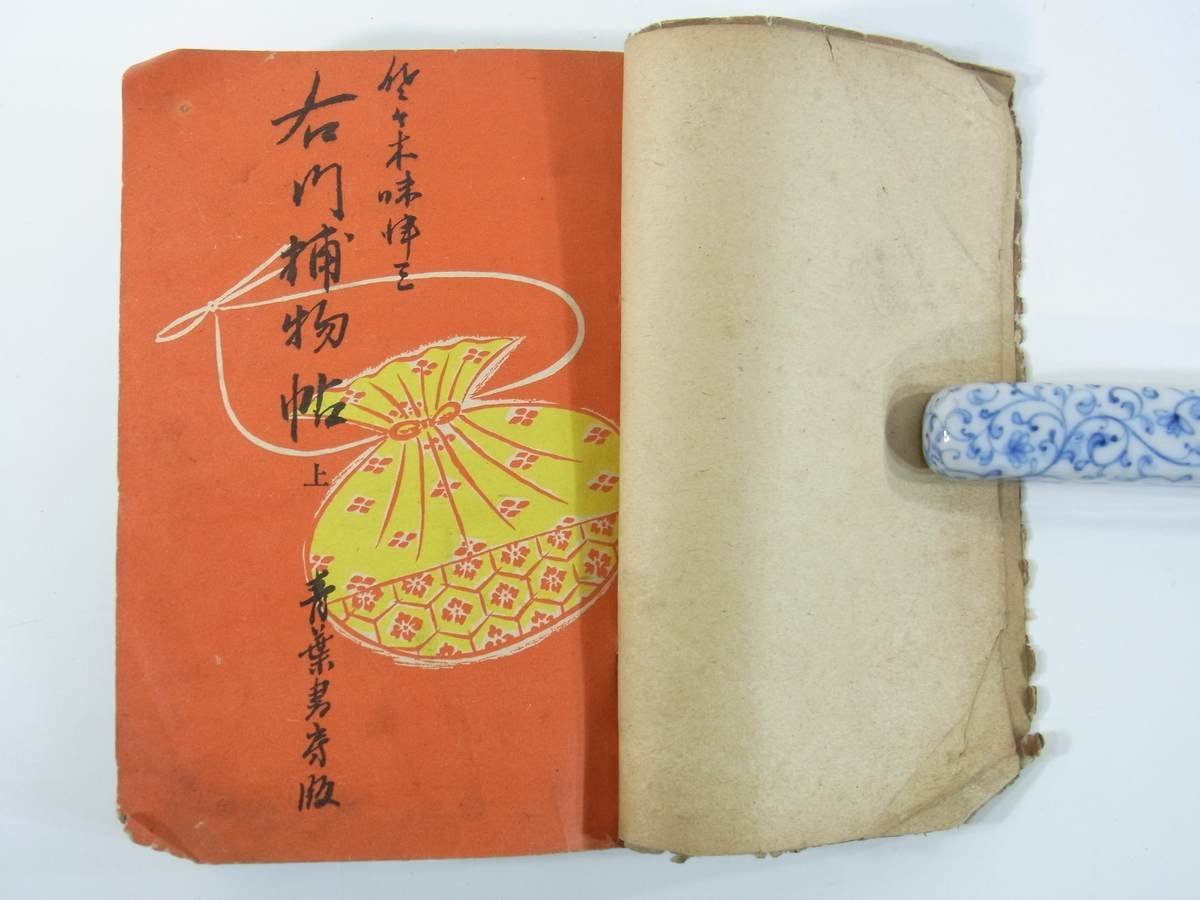 佐々木味津三
右門捕物帖 上
青葉書房版